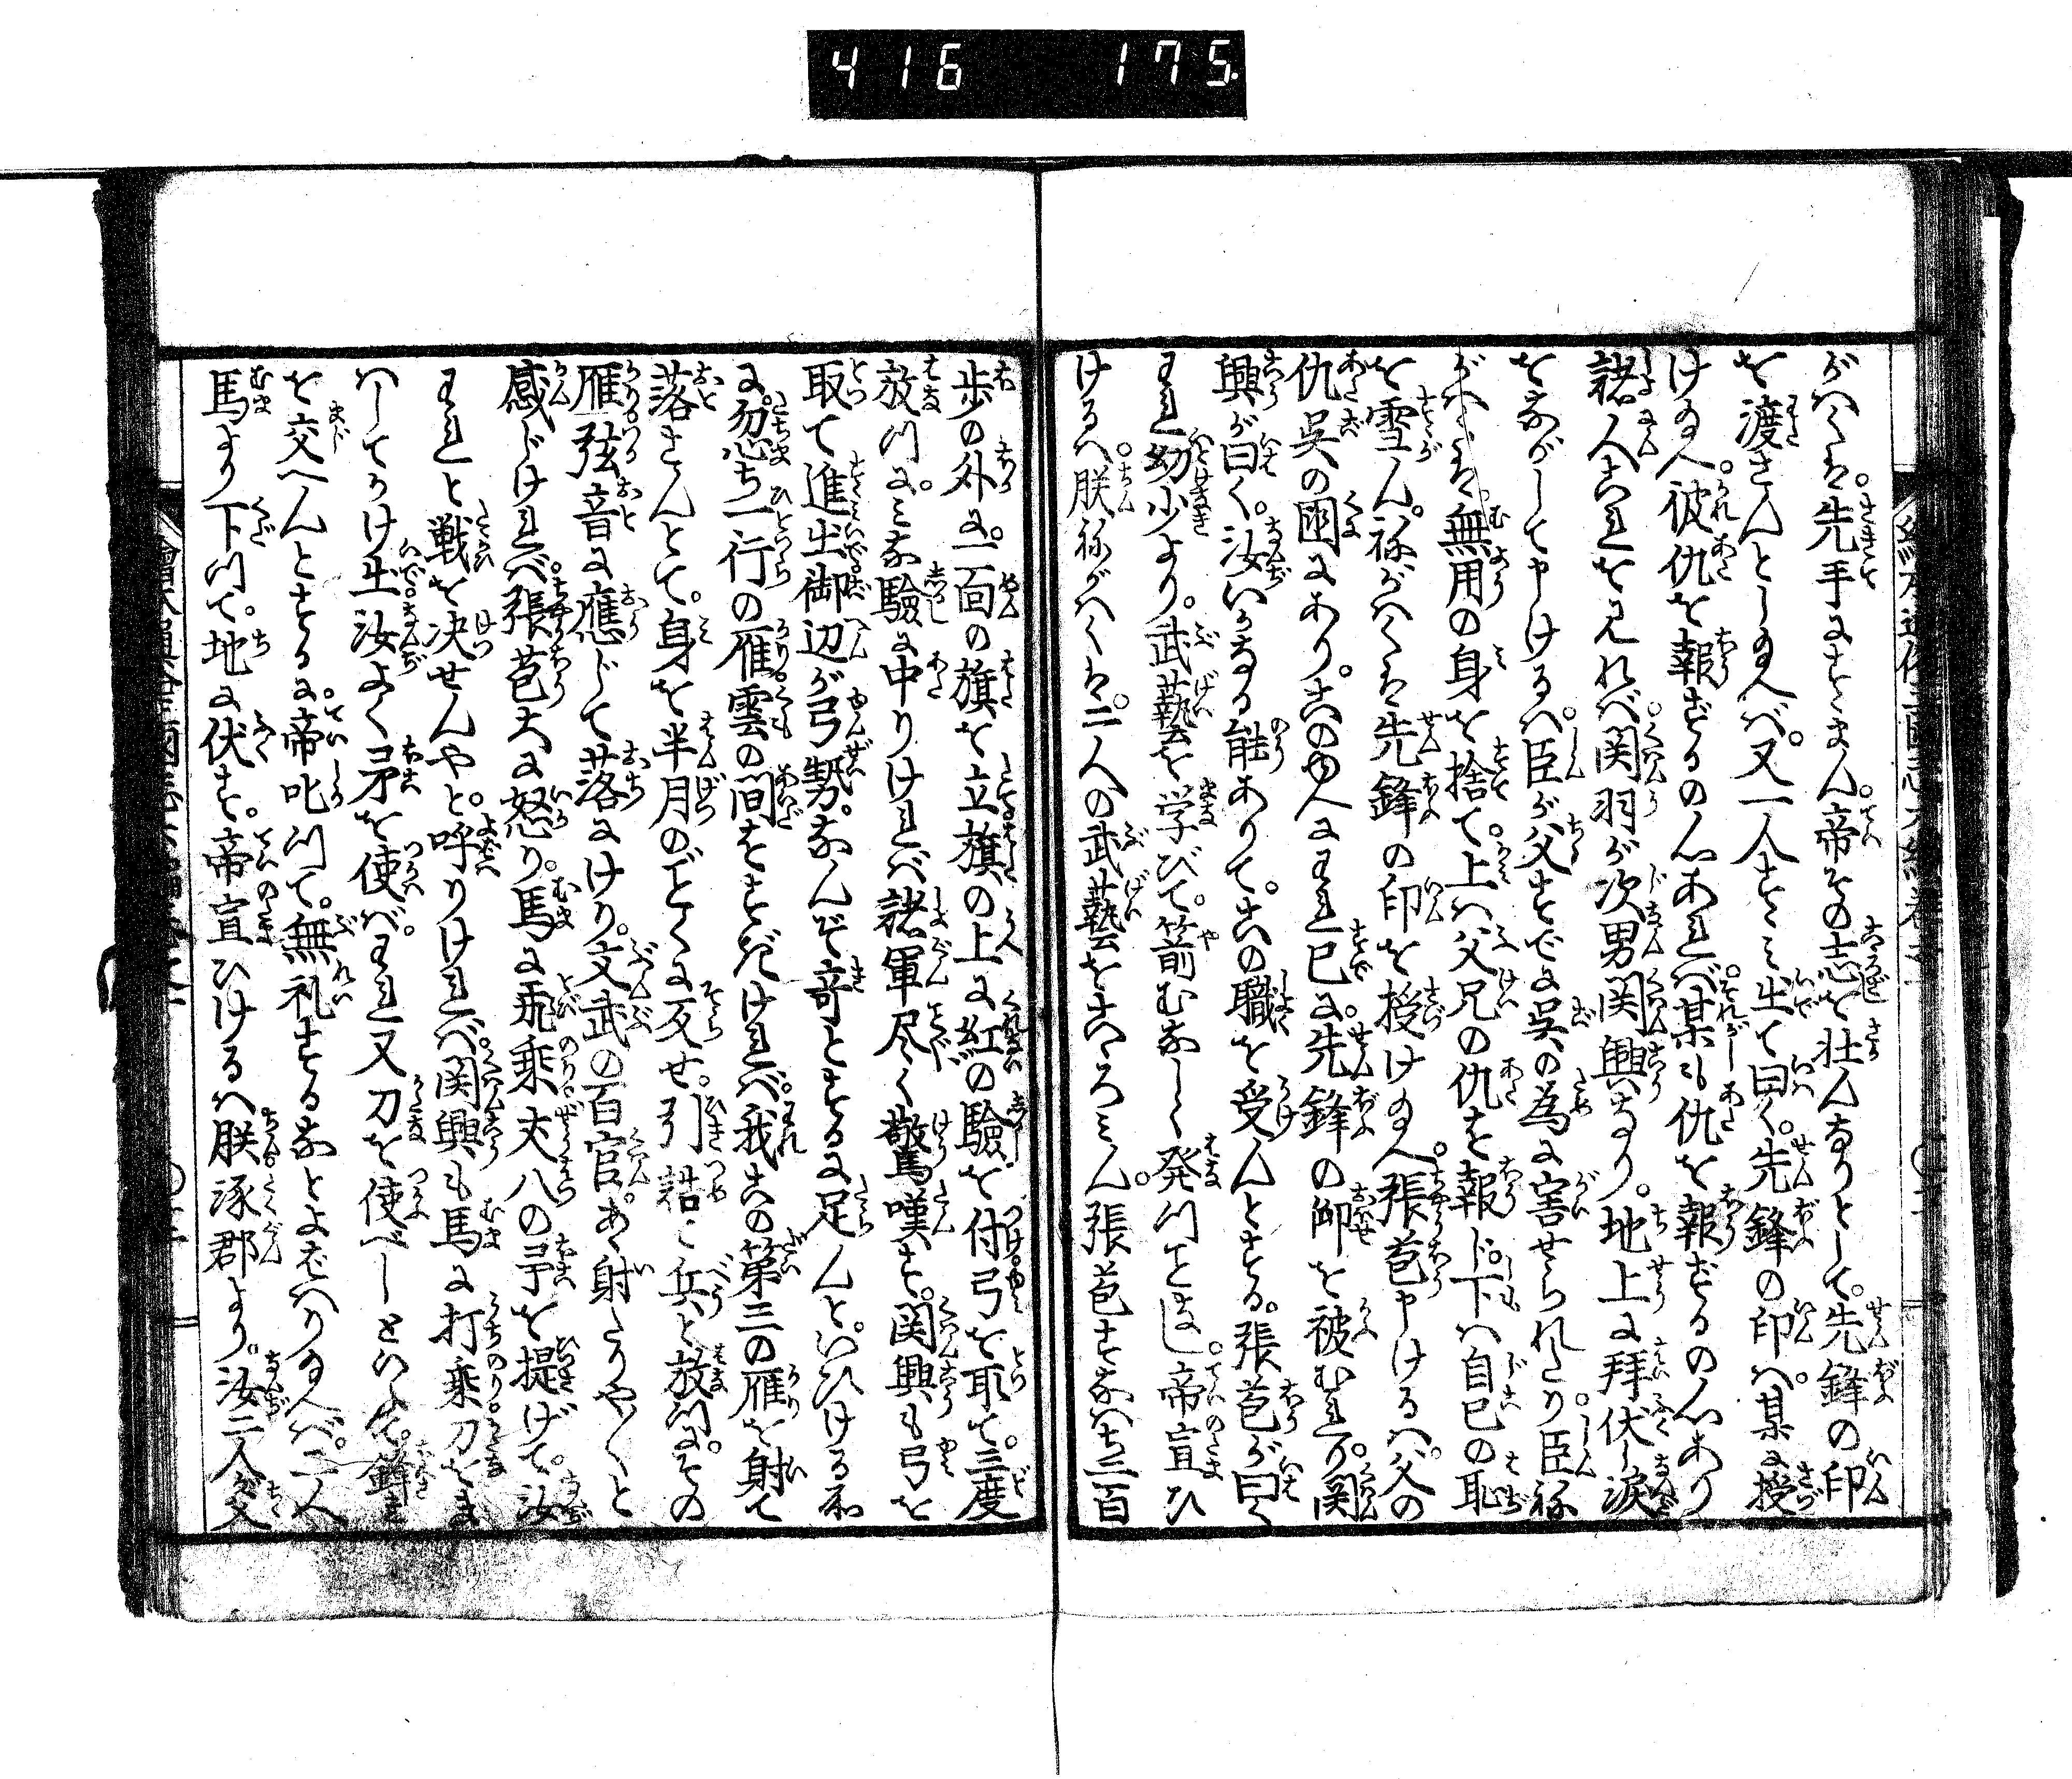 416 175.
がハくは。先手にすゝまん。帝その志を壮んなりとして。先鋒の印
を渡さんとし給へば。又一人すゝミ出て曰く。先鋒の印ハ。某に授
け給へ。彼仇を報ずるの心あれバ。某も仇を報ずるの心あり
諸人これを見れバ。関羽が次男関興なり。地上に拝伏し涙
をながして申けるハ。臣が父すでに呉の為に害せられたり。臣願
がハくは無用の身を捨て。上ハ父兄の仇を報ひ。下ハ自己の恥
を雪ん。願がハくは先鋒の印を授け給へ。張苞申けるハ。父の
仇呉の国にあり。このゆへにわれ已に。先鋒の御を被むれり。関
興が曰く。汝いかなる能ありて。この職を受んとする。張苞が曰く
われ幼少より。武藝を学びて。箭むなしく発つことなし。帝宣ひ
けるハ。朕願がハくは。二人の武藝をこゝろミん。張苞すなハち三百
歩の外に。一面の旗を立旗の上に紅の驗を付弓を取て。三度
放つに。ミな驗に中りけれバ諸軍尽く驚嘆す。関興も弓を
取て進出御辺が弓勢。なんぞ奇とするに足んと。いひける所
に。忽ち一行の雁。雲の間をすぎけれバ。我この第三の雁を射て
落さんとて。身を半月のごとくに反せ。引詰て兵と放つに。その
雁。弦音に應じて落にけり。文武の百官。あゝ射たりや〳〵と
感じけれバ。張苞大に怒り。馬に飛乗。丈八の矛を提げて。汝
われと戦を决せんやと。呼りけれバ。関興も馬に打乗。刀をま
ハしてかけ出汝よく矛を使バ。われ又刀を使べしといふて。鋒を
を交へんとするに。帝叱つて。無礼するなとよばハり給へバ。二人
馬より下つて。地に伏す。帝宣ひけるハ朕涿郡より。汝二人が父